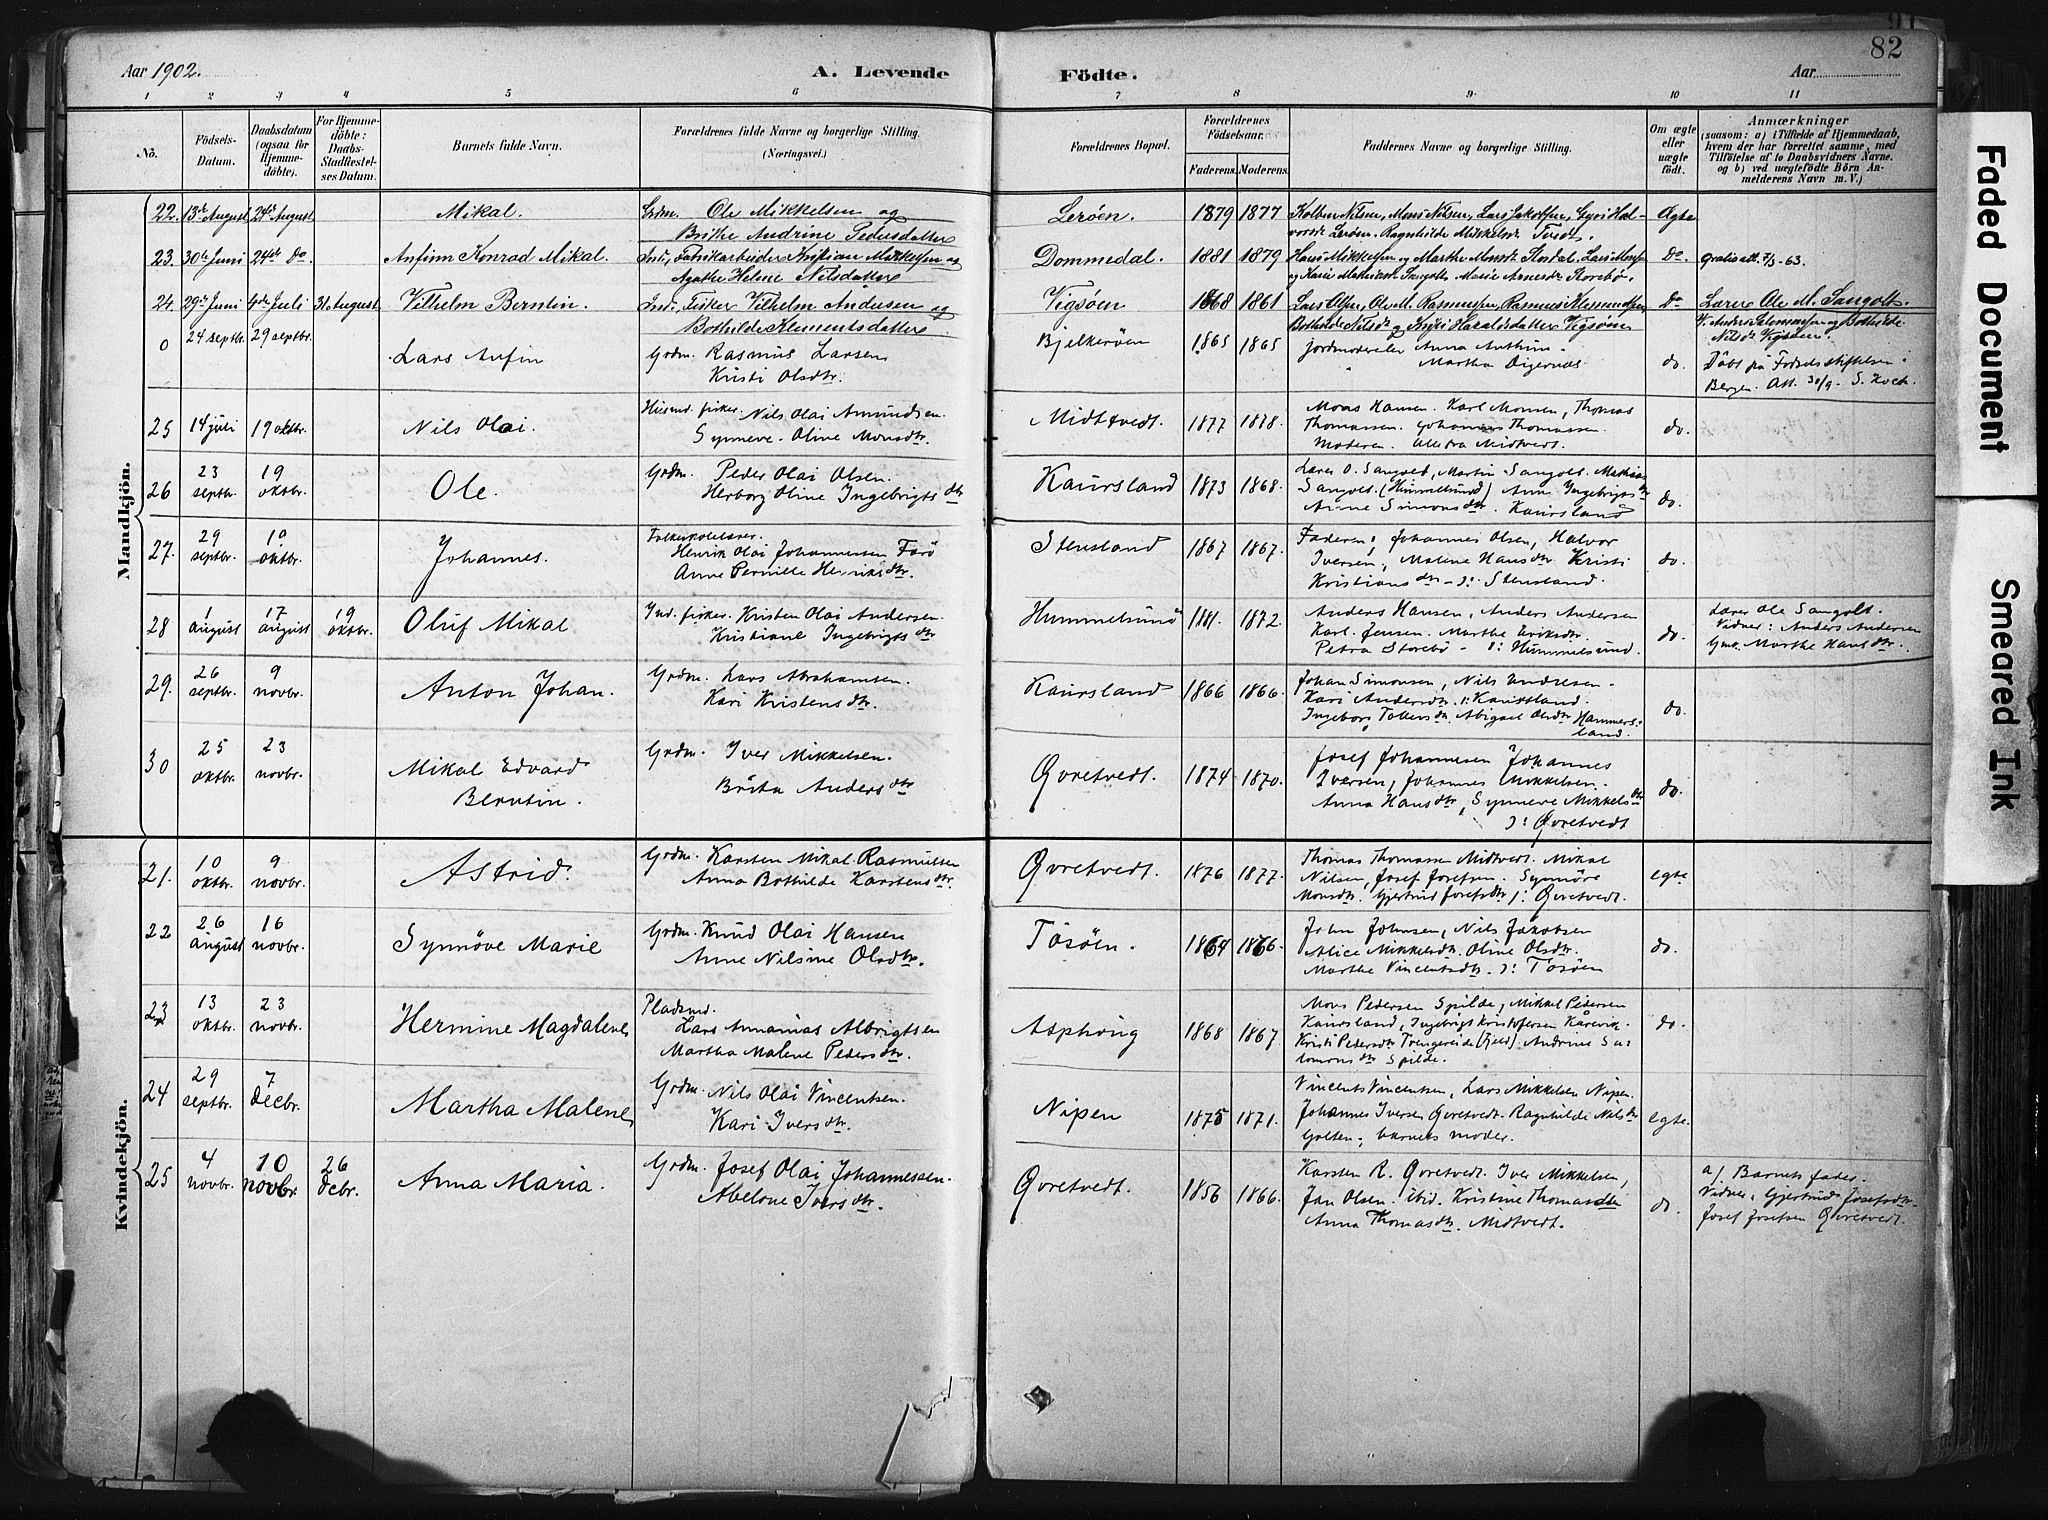 82
Aar 1902.
A. Levende
Födte.
Aar
1 2 3 4 5 6 7 8 9 10 11
No.
Födsels-Datum.
Daabsdatum (ogsaa for Hjemmedöbte).
For Hjemmedöbte: Daabs-Stadfæstelses Datum.
Barnets fulde Navn.
Forældrenes fulde Navne og borgerlige Stilling.
(Næringsvei.)
Forældrenes Bopæl.
Forældrenes Födselsaar.
Faderens. Moderens.
Faddernes Navne og borgerlige Stilling.
Om ægte eller uægte födt.
Anmærkninger
(saasom: a) i Tilfælde af Hjemmedaab, hvem der har forrettet samme, med Tilföielse af to Daabsvidners Navne. og b) ved uægtefödte Börn Anmelderens Navn m. V.)
Mandkjön.
22. 13de August 24de August Mikal. Grdm. Ole Mikkelsen og
Brithe Andrine Pedersdatter
Leröen. 1879 1877
Kolben Nilsen, Mons Nilsen, Lars Jakobsen, Gyri Halvorsdr Leröen. Ragnhilde Mikkelsdr
Ægte
23. 30te Juni 24de Do Anfinn Konrad Mikal. Ind., Fabrikarbeider Kristian Mikkelsen og
Agathe Helene Nilsdatter
Dommedal. 1881 1879
Hans Mikkelsen og Marthe Monsdr
og Karie Mathiesen Sangolt. Marie Arnesdr Storebö.
Do. Gratisatt. 7/3-63.
24. 29de Juni 4de Juli 31 August Vilhelm Berntin. Ind., Fisker Vilhelm Andersen og
Bothilde Klementsdatter
Vigsöen 1868 1861
Lars Olsen, Ole M. Rasmussen, Rasmus Klementsen,
Bothilde Nilsdr og Inger Haraldsdatter Vigsöen
Do Lærer Ole M. Sangolt.
V. Anders Salomonsen og Bothilde
Nilsdr Vigsöen.
0 24 septbr. 29 septbr. Lars Anfin Grdm. Rasmus Larsen
Kristi Olsdtr.
Bjelkeröen 1865 1865
Jordmoderelev Anna Anthun.
" Martha Digernæs
do. Döbt på Fødselsstiftelsen i
Bergen. Att. 30/9 - S. Koch.
25 14 juli 19 oktbr. Nils Olai. Husmd. fisker. Nils Olai Amundsen.
Synneve Oline Monsdtr.
Midttvedt. 1877 1878.
Mons Hansen. Karl Monsen, Thomas
Thomassen. Johannes Thomassen.
Moderen. Midtvedt.
do.
26 23 septbr. 19 oktbr. Ole. Grdm. Peder Olai Olsen.
Herborg Oline Ingebrigtsdtr
Kaursland 1873 1868.
Lærer O. Sangolt, Martin Sangolt. Mathias
Sangolt. (Hummelsund) Anne Ingebrigtsdtr
Anne Simonsdtr. Kaursland
do.
27. 29 septbr. 19 oktbr. Johannes. Folkeskolelærer.
Henrik Olai Johannessen Farö
Anne Pernille Henriksdtr.
Stensland 1867 1867.
Faderen, Johannes Olsen, Halvor
Iversen, Malene Hansdtr Kristi
Kristiansdtr - ɔ: Stensland.
do.
28 1 august 17 august 19 oktbr. Oluf Mikal Ind. fisker. Kristen Olai Andersen.
Kristiane Ingebrigtsdtr
Hummelsund 1881. 1872.
Anders Hansen, Anders Andersen
Karl Jensen. Marthe Eriksdtr.
Petra Storebö - ɔ: Hummelsund.
do. Lærer Ole Sangolt.
Vidner: Anders Andersen
Gmk. Marthe Hansdtr.
29. 26 septbr. 9 novbr. Anton Johan. Grdm. Lars Abrahamsen.
Kari Kristensdtr.
Kaursland 1866 1866.
Johan Simonsen, Nils Andresen.
Kari Andersdtr. ɔ: Kaursland.
Ingeborg Tollevsdtr. Abigael Olsdtr Hammersland.
do.
30 25 oktbr. 23 novbr. Mikal Edvard
Berntin.
Grdm. Iver Mikkelsen.
Brita Andersdtr
Qvretvedt. 1874 1870.
Josef Johannesen Johannes
Iversen, Johannes Mikkelsen.
Anna Hansdtr, Synneve Mikkelsdtr
ɔ: Qvretvedt
do.
Kvindekjön.
21. 10 oktbr. 9 novbr. Astrid. Grdm. Karsten Mikal Rasmussen
Anna Bothilde Karstensdtr.
Qvretvedt. 1876 1877.
Thomas Thomassen Midtvedt. Mikal
Nilsen, Josef Josefsen. Synnöve
Monsdtr. Gjertrud Josefsdtr ɔ: Qvretvedt.
egte
22 26 august 16 novbr. Synnöve Marie Grdm. Knud Olai Hansen
Anne Nilsine Olsdtr.
Tösöen. 1864 1866.
John Johnsen, Nils Jakobsen
Alice Mikkelsdtr. Oline Olsdtr.
Marthe Vincentsdtr. ɔ: Tösöen
do.
23 13 oktbr. 23 novbr. Hermine Magdalene Pladsmd.
Lars Annanias Albrigtsen
Martha Malene Pedersdtr.
Asphöug 1868 1867
Mons Pedersen Spilde, Mikkel Pedersen
Kaursland, Ingebrigt Kristofersen Kårevik.
Kristi Pedersdtr Trengereide (Fjeld) Andrine Salomonsdtr Spilde.
do.
24 29 septbr. 7 decbr. Martha Malene Grdm. Nils Olai Vincentsen.
Kari Iversdtr.
Nipen 1875 1871.
Vincents Vincentsen, Lars Mikkelsen Nipen.
Johannes Iversen Qvretvedt. Ragnhilde Nilsdtr
Golten, barnets moder.
egte.
25 4 novbr. 10 novbr. 26 decbr. Anna Maria. Grdm. Josef Olai Johannessen.
Abelone Iversdtr.
Qvretvedt. 1856 1866.
Karsten R. Qvretvedt. Iver Mikkelsen,
Jan Olsen ibid. Kristine Thomasdtr
Anna Thomasdtr. Midtvedt.
do. a/ Barnets fader.
Vidner: Gjertrud Josefsdtr.
Josef Josefsen Qvretvedt.
Faded Document
Smeared Ink